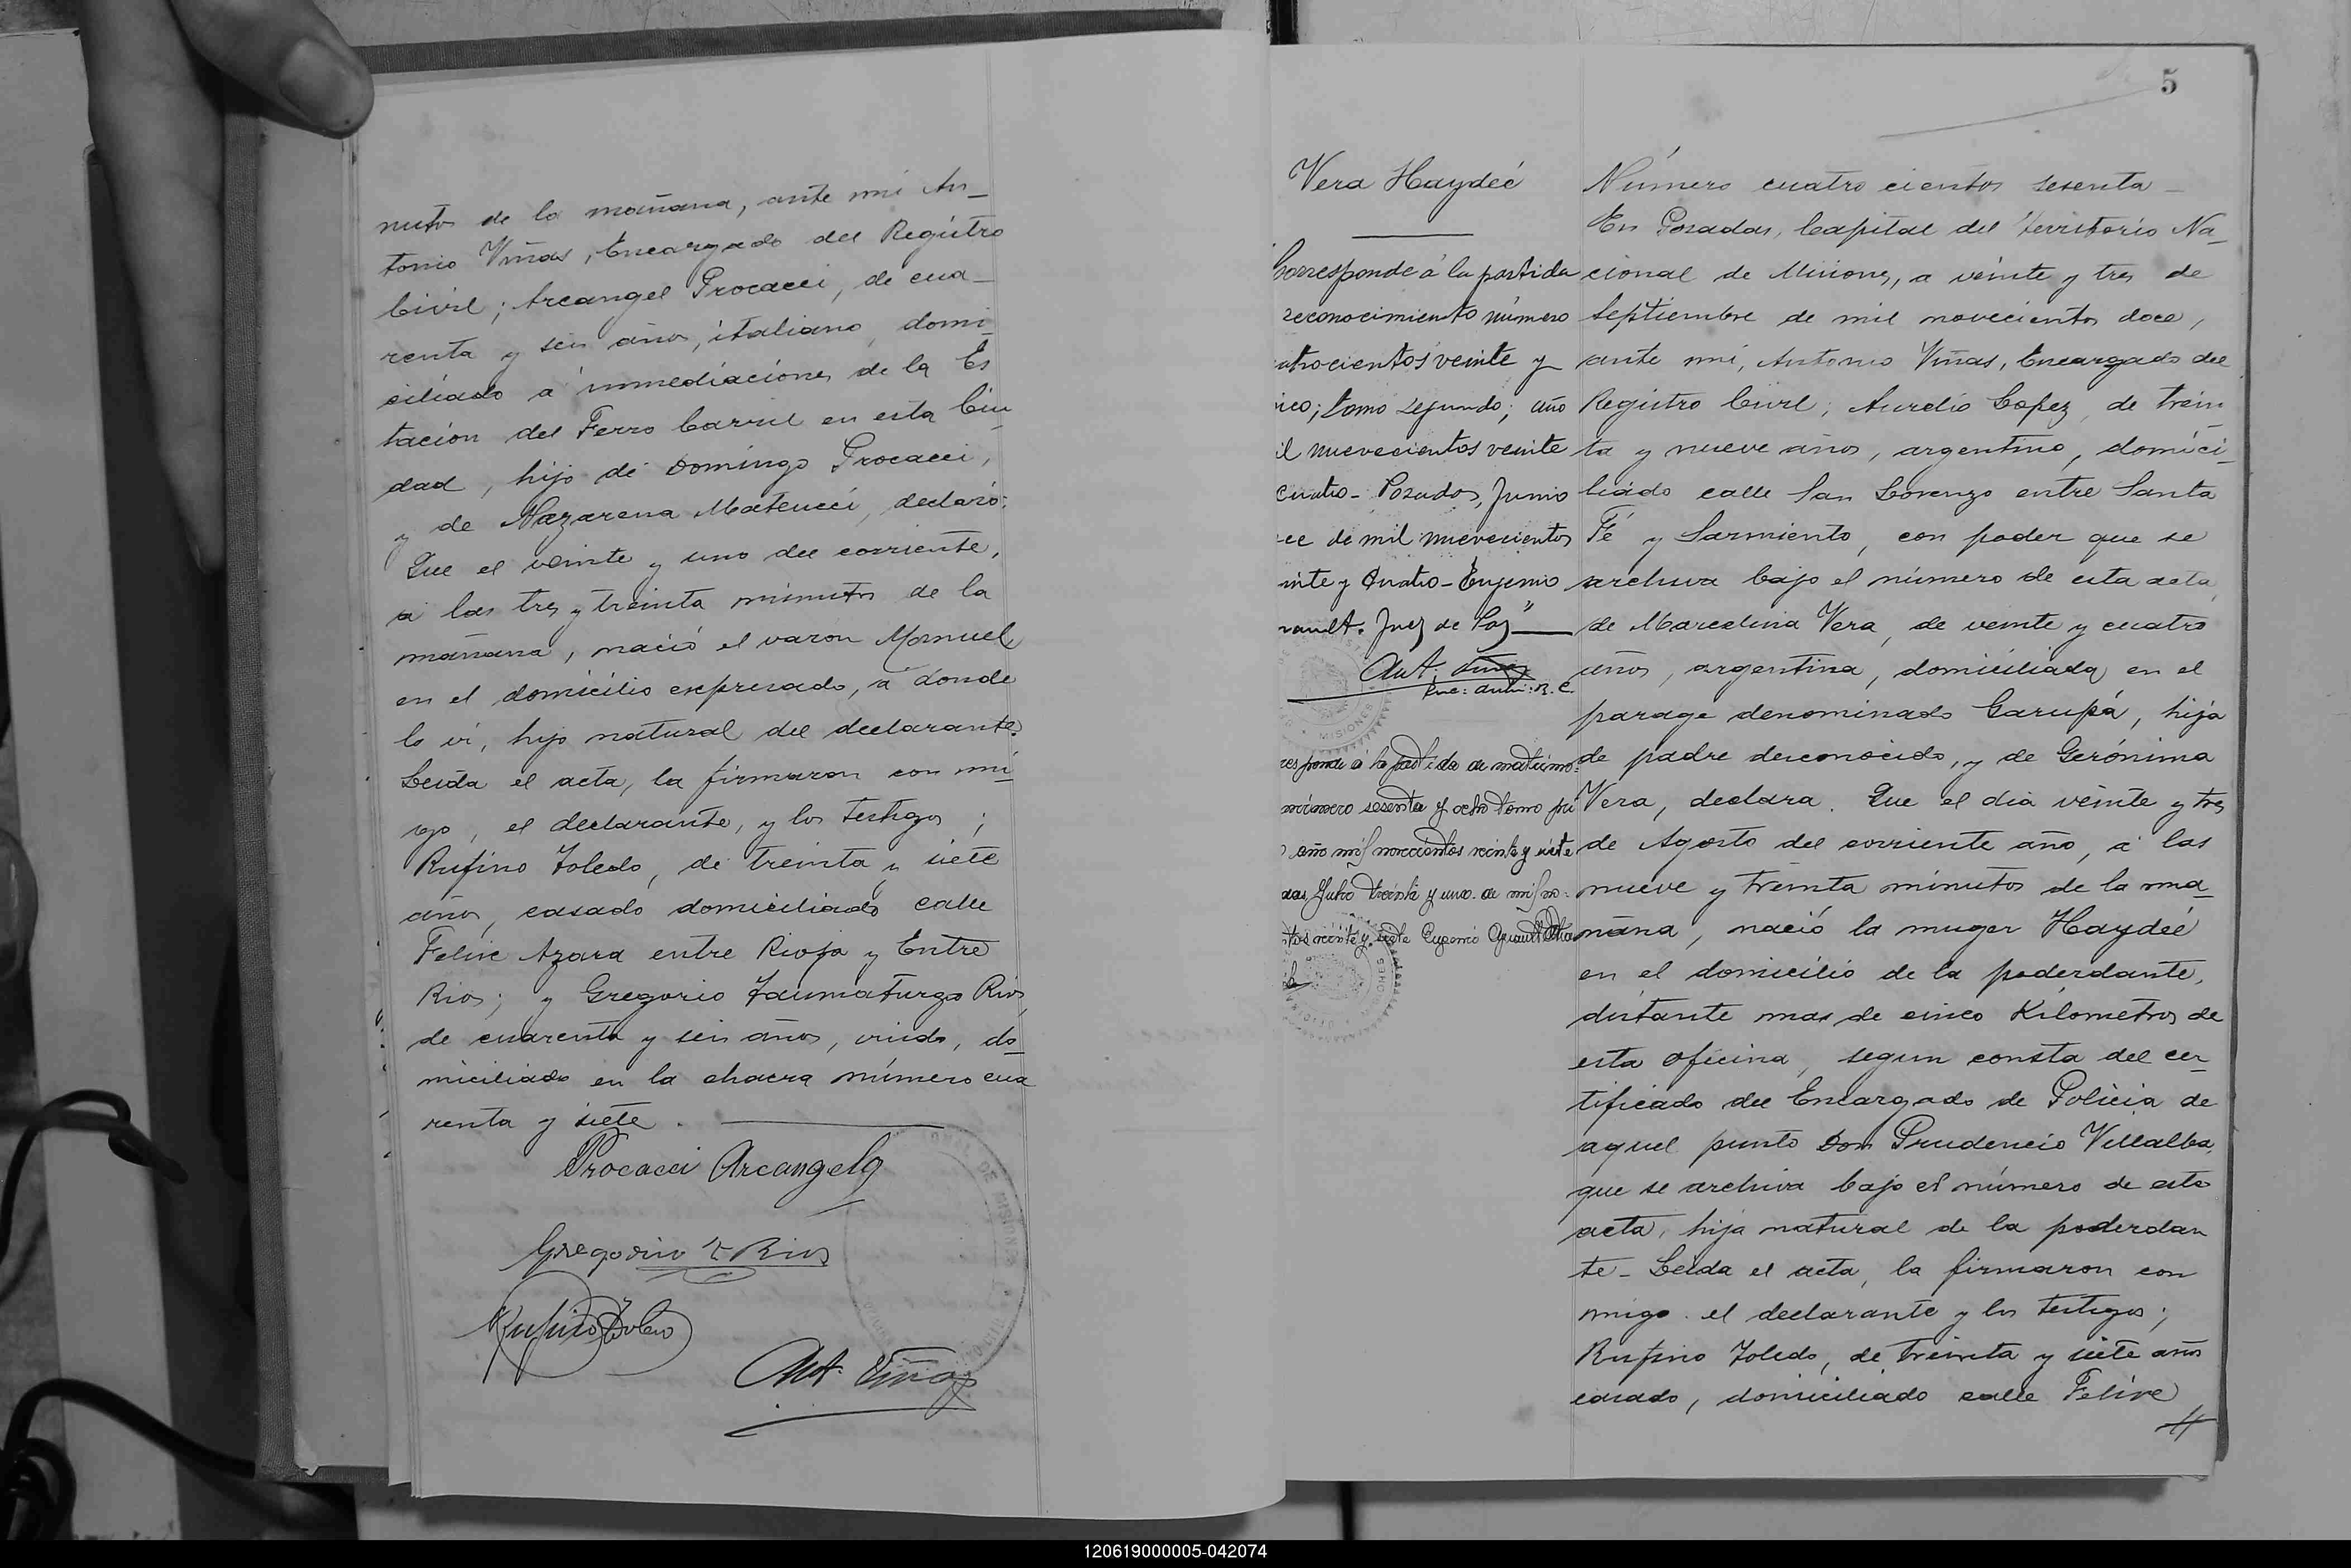 nutos de la mañana, ante mi An_
tonio Viñas, Encargado del Registro
Civil; Arcangel Procacci, de cua_
renta y seis años, italiano, domi_
ciliado a inmediaciones de la Es
tacion del Ferro Carril en esta Ciu_
dad, hijo de Domingo Procacci,
y de Nazarena Mateucci, declaró:
Que el veinte y uno del corriente,
a las tres y treinta minutos de la
mañana, nació el varon Manuel
en el domicilio expresado, a donde
lo vi, hijo natural del declarante.
Leida el acta, la firmaron con mi_
go, el declarante, y los testigos;
Rufino Toledo, de treinta y siete
años, casado domiciliado calle
Felix Azara entre Rioja y Entre
Rios; y Gregorio Taumaturgo Rios
de cuarenta y seis años, viudo, do_
miciliado en la chacra número cua
renta y siete.
Procacci Arcangelo
Gregorino T Rios
Rufino Toledo
Ant. Viñas
5
Vera Haydeé
Corresponde á la partida
reconocimiento número
atrocientos veinte y
nco; tomo segundo; año
il nuevecientos veinte
cuatro - Posadas, Junio
ce de mil nuevecientos
inte y cuatro - Eugenio
nault. Juez de Paz"
Ant. Viñas
Enc: R. C.
MISIONES
responde á la partida de matrimo_
número sesenta y ocho tomo pri
año mil novecientos veinte y siete
das, Julio treinta y uno de mil no_
ntos veinte y siete Eugenio
Número cuatro cientos sesenta _
En Posadas, Capital del Territorio Na_
cional de Misiones, a veinte y tres de
Septiembre de mil novecientos doce,
ante mi, Antonio Viñas, Encargado del
Registro Civil; Aurelio Lopez, de trein
ta y nueve años, argentino, domici_
liado calle San Lorenzo entre Santa
Fé y Sarmiento, con poder que se
archiva bajo el número de esta acta,
de Marcelina Vera, de veinte y cuatro
años, argentina, domiciliada en el
parage denominado Garupá, hija
de padre desconocido, y de Gerónima
Vera, declara. Que el dia veinte y tres
de Agosto del corriente año, a las
nueve y treinta minutos de la ma_
ñana, nació la muger Haydeé
en el domicilio de la poderdante,
distante mas de cinco Kilometros de
esta oficina, segun consta del cer_
tificado del Encargado de Policia de
aquel punto Don Prudencio Villalba,
que se archiva bajo el número de esta
acta, hija natural de la poderdan
te - Leida el acta, la firmaron con
migo el declarante y los testigos;
Rufino Toledo, de treinta y siete años
casado, domiciliado calle Felix
120619000005-042074